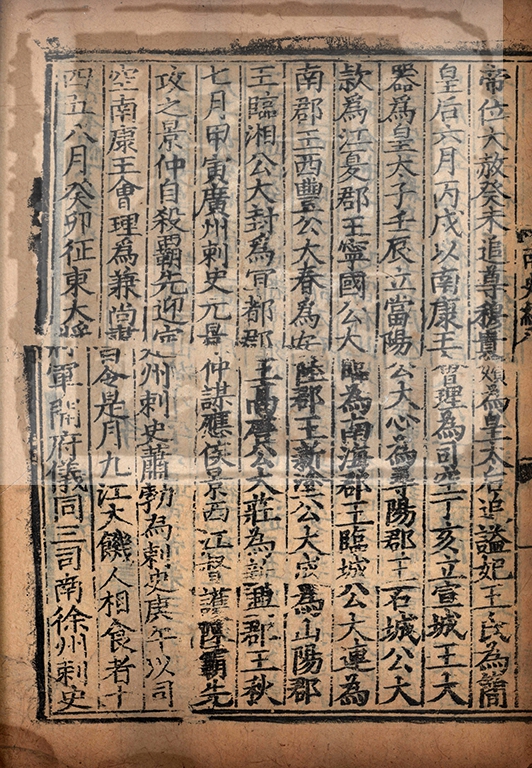 帝位大赦癸未追尊穆貴嬪為皇太后追謚妃王氏為簡
皇后六月丙戌以南康王會理為司空丁亥立宣城王大
器為皇太子壬辰立當陽公大心為尋陽郡王石城公大
款為江夏郡王寧國公大臨為南海郡王臨城公大連為
南郡王西豐公大春為安陸郡王新淦公大成為山陽郡
王臨湘公大封為宜都郡王高唐公大莊為新興郡王秋
七月甲寅廣州刺史元景仲謀應侯景西江督護陳霸先
攻之景仲自殺霸先迎定州刺史蕭勃為刺史庚午以司
空南康王會理為兼尚書令是月九江大饑人相食者十
四五八月癸卯征東大將軍開府儀同三司南徐州刺史